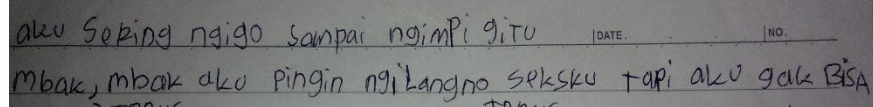 aku sering ngigo sampai ngimpi gitu DATE. NO.
mbak, mbak aku pingin ngilangno seksku tapi aku gak BisA